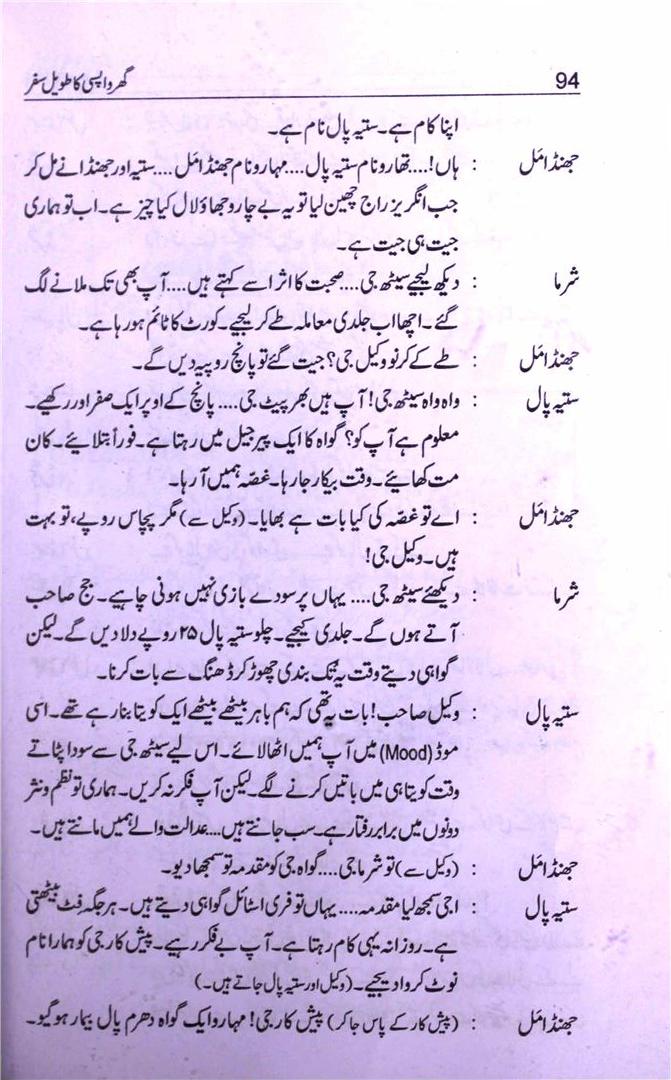 94 گھر واپسی کا طویل سفر
اپنا کام ہے۔ ستیہ پال نام ہے۔
جھنڈا مَل : ہاں!.... تھارو نام ستیہ پال.... مہارو نام جھنڈا مَل.... ستیہ اور جھنڈا نے مل کر
جب انگریز راج چھین لیا تو یہ بے چارو جھاؤلال کیا چیز ہے۔ اب تو ہماری
جیت ہی جیت ہے۔
شرما : دیکھ لیجیے سیٹھ جی.... صحبت کا اثر اسے کہتے ہیں.... آپ بھی تک ملانے لگ
گئے۔ اچھا اب جلدی معاملہ طے کر لیجیے۔ کورٹ کا ٹائم ہو رہا ہے۔
جھنڈا مَل : طے کے کرنو وکیل جی؟ جیت گئے تو پانچ روپیہ دیں گے۔
ستیہ پال : واہ واہ سیٹھ جی! آپ ہیں بھر پیٹ جی.... پانچ کے اوپر ایک صفر اور رکھیے۔
معلوم ہے آپ کو؟ گواہ کا ایک پیر جیل میں رہتا ہے۔ فوراً بتلائیے۔ کان
مت کھائیے۔ وقت بیکار جا رہا۔ غصّہ ہمیں آ رہا۔
جھنڈا مَل : اے تو غصّہ کی کیا بات ہے بھایا۔ (وکیل سے) مگر پچاس روپے، تو بہت
ہیں۔ وکیل جی!
شرما : دیکھئے سیٹھ جی.... یہاں پر سودے بازی نہیں ہونی چاہیے۔ جج صاحب
آتے ہوں گے۔ جلدی کیجیے۔ چلو ستیہ پال ۲۵ روپے دلا دیں گے۔ لیکن
گواہی دیتے وقت یہ تُک بندی چھوڑ کر ڈھنگ سے بات کرنا۔
ستیہ پال : وکیل صاحب! بات یہ تھی کہ ہم باہر بیٹھے بیٹھے ایک کویتا بنا رہے تھے۔ اسی
موڈ (Mood) میں آپ ہمیں اٹھا لائے۔ اس لیے سیٹھ جی سے سودا پٹاتے
وقت کویتا ہی میں باتیں کرنے لگے۔ لیکن آپ فکر نہ کریں۔ ہماری تو نظم و نثر
دونوں میں برابر رفتار ہے۔ سب جانتے ہیں.... عدالت والے ہمیں مانتے ہیں۔
جھنڈا مَل : (وکیل سے) تو شرما جی.... گواہ جی کو مقدمہ تو سمجھا دیو۔
ستیہ پال : اجی سمجھ لیا مقدمہ.... یہاں تو فری اسٹائل گواہی دیتے ہیں۔ ہر جگہ فِٹ بیٹھتی
ہے۔ روزانہ یہی کام رہتا ہے۔ آپ بے فکر رہیے۔ پیش کار جی کو ہمارا نام
نوٹ کروا دیجیے۔ (وکیل اور ستیہ پال جاتے ہیں۔)
جھنڈا مَل : (پیش کار کے پاس جا کر) پیش کار جی! مہارو ایک گواہ دھرم پال بیمار ہو گیو۔